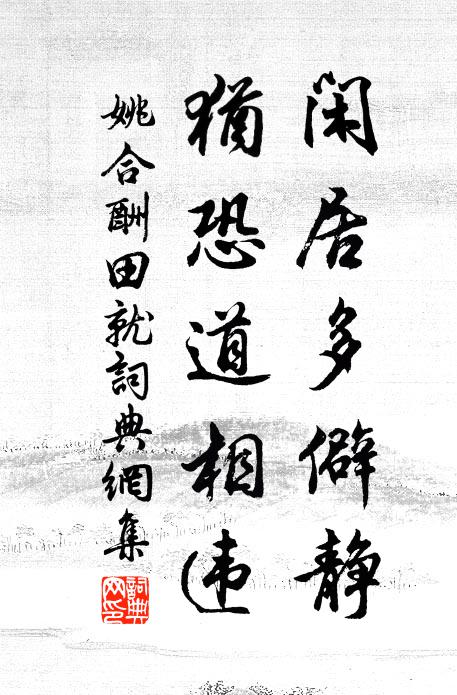 闲居多僻静
猶恐道相违
姚合酬田就詞典網集
詞典网印